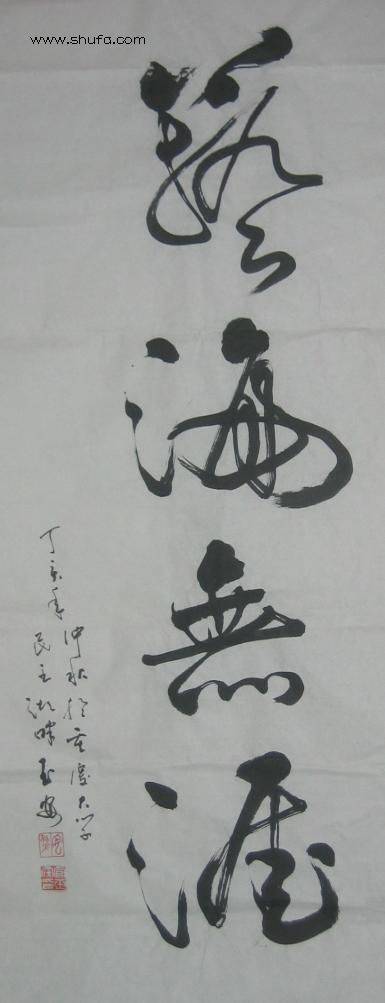 www.shufa.com
藝海無涯
丁亥年仲秋於重慶大学
民主湖畔